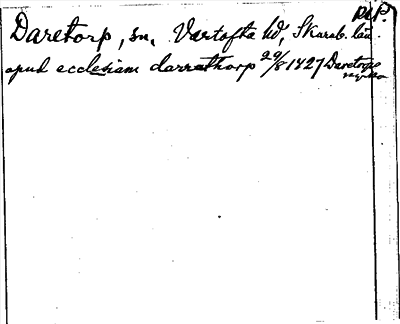 RAP.
Daretorp, sn, Vartofta hd, Skarab. län.
apud ecclesiam darrathorp 29/8 1427 Daretorps